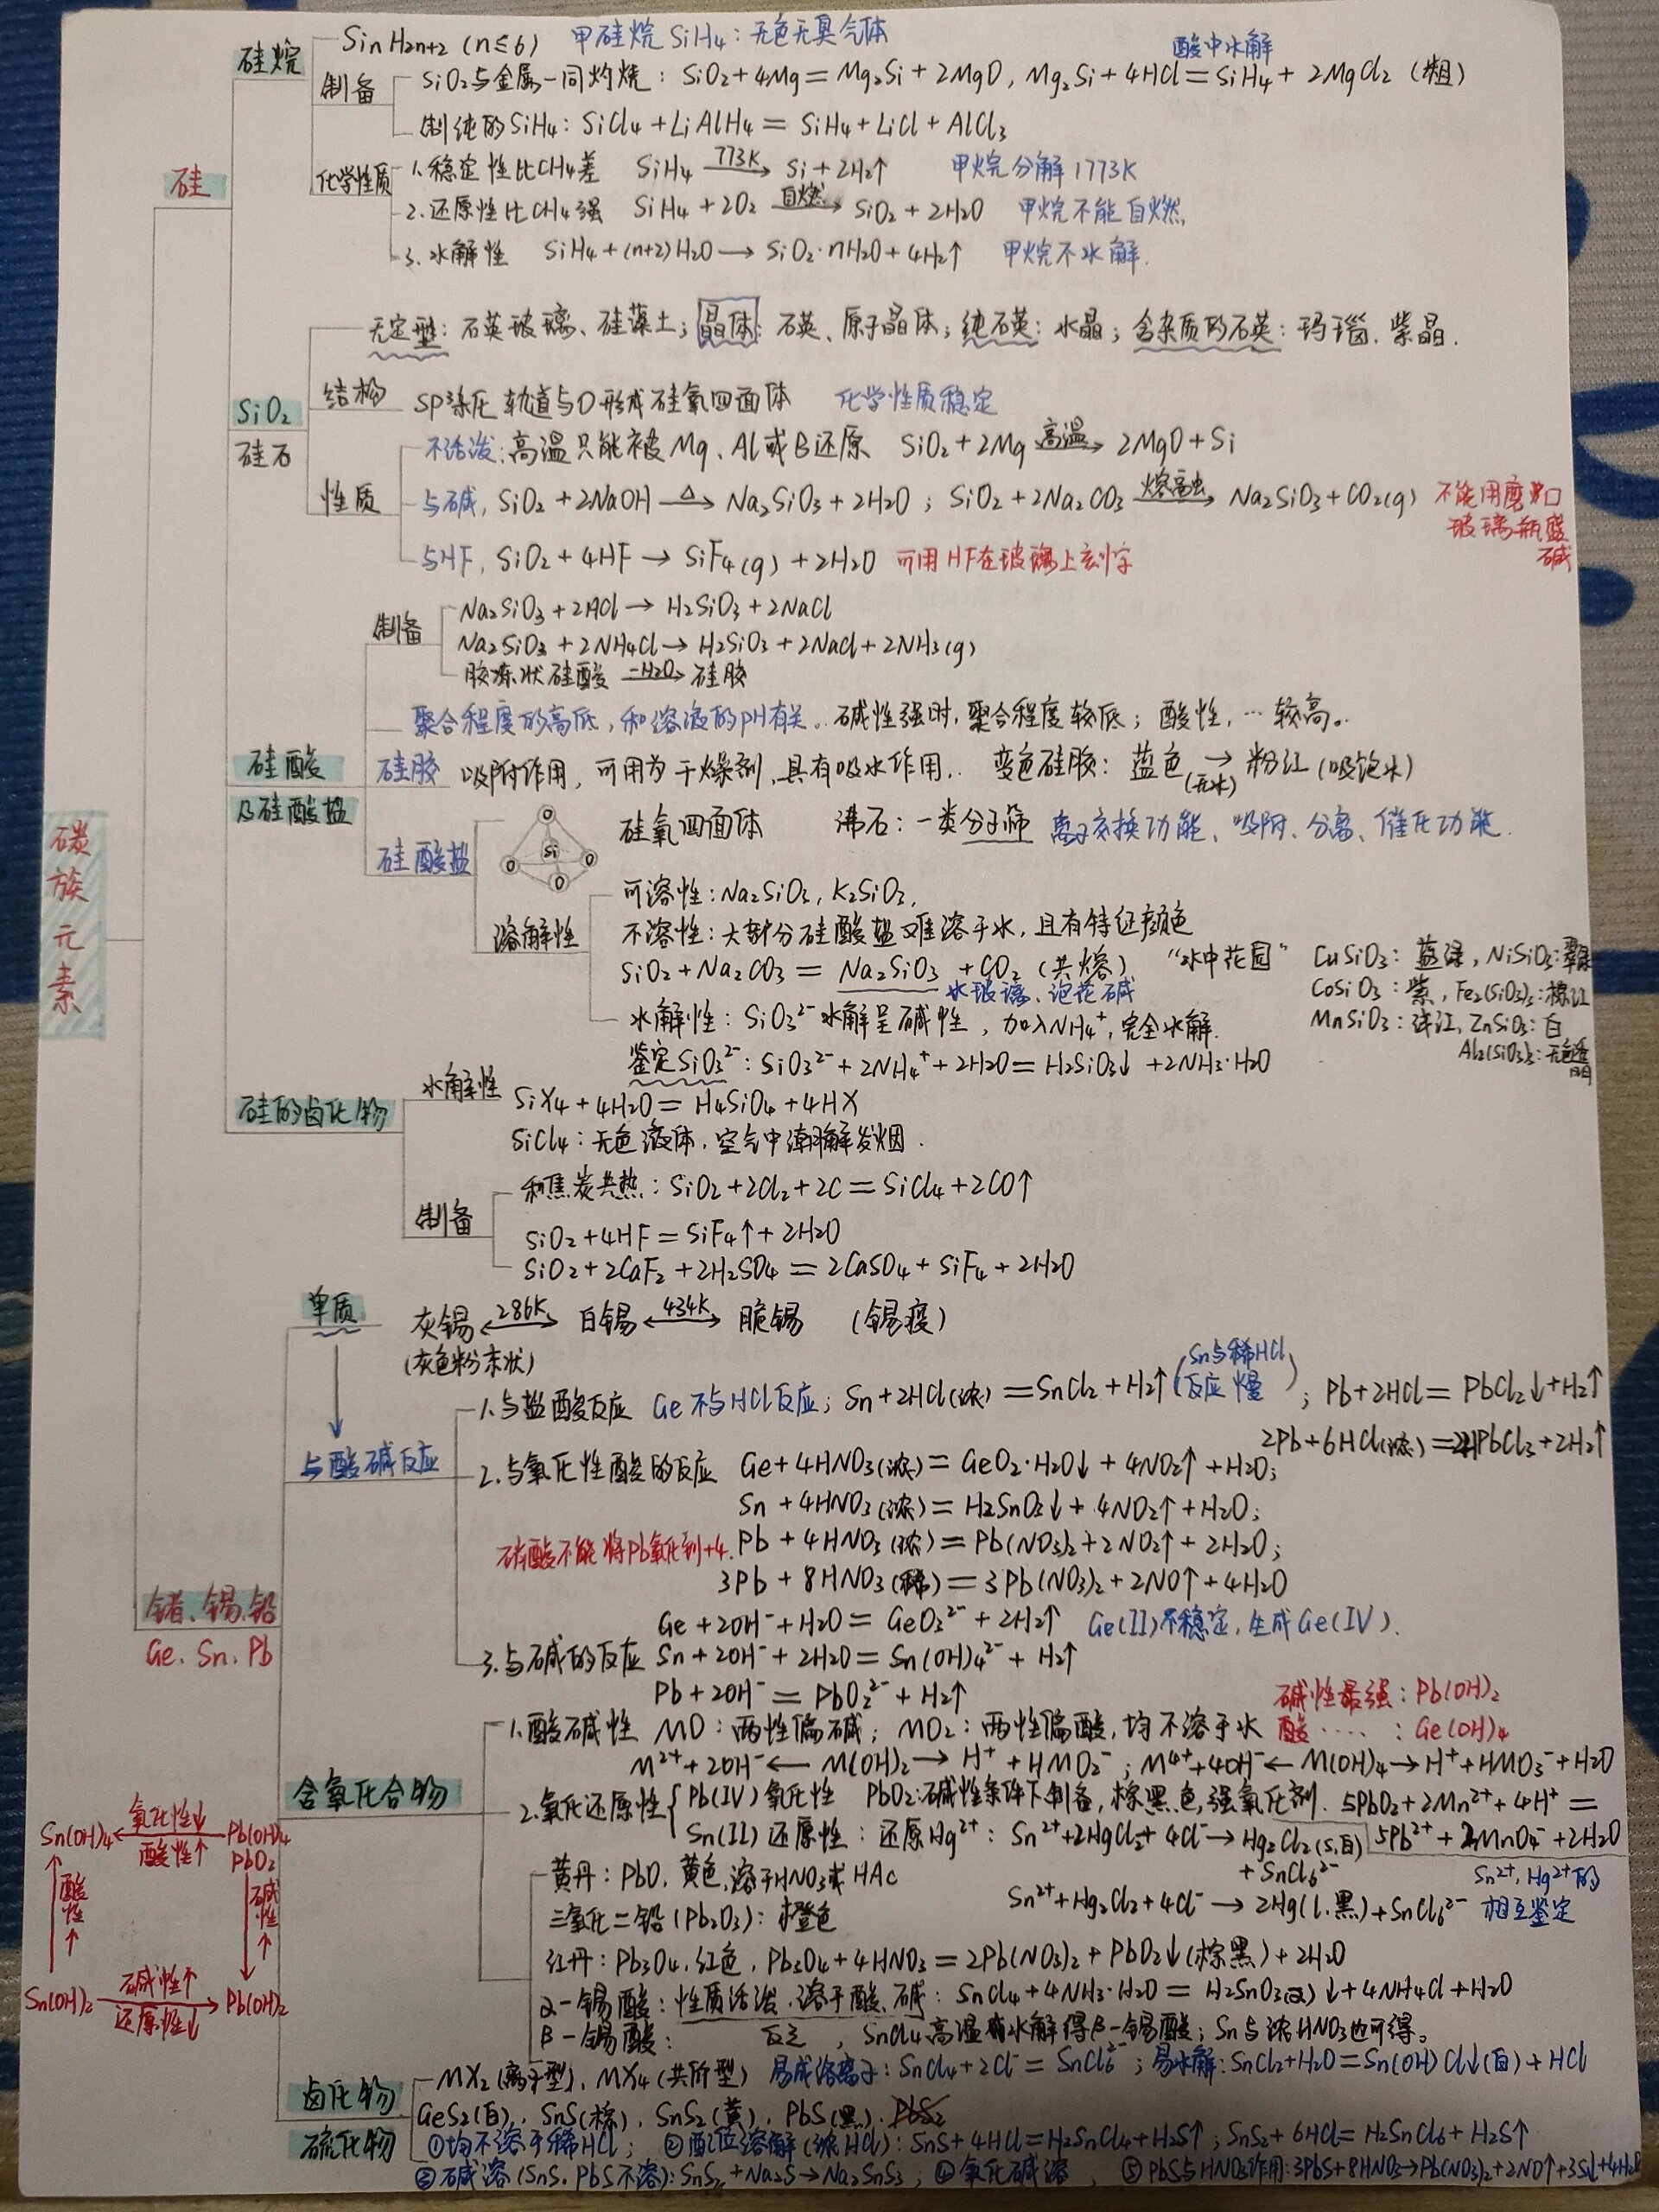 碳族元素
硅
硅烷
SinH2n+2 (n≤6) 甲硅烷 SiH4：无色无臭气体
酸中水解
制备
SiO2与金属一同灼烧：SiO2+4Mg=Mg2Si+2MgO, Mg2Si+4HCl=SiH4+2MgCl2 (粗)
制纯的SiH4：SiCl4+LiAlH4=SiH4+LiCl+AlCl3
化学性质
1.稳定性比CH4差 SiH4 —773K→ Si+2H2↑ 甲烷分解1773K
2.还原性比CH4强 SiH4+2O2 —自燃→ SiO2+2H2O 甲烷不能自燃.
3.水解性 SiH4+(n+2)H2O→SiO2·nH2O+4H2↑ 甲烷不水解.
SiO2
硅石
无定型：石英玻璃、硅藻土；晶体：石英、原子晶体；纯石英：水晶；含杂质的石英：玛瑙、紫晶.
结构 SP3杂化轨道与O形成硅氧四面体 化学性质稳定
性质
不活泼：高温只能被Mg、Al或B还原 SiO2+2Mg —高温→ 2MgO+Si
与碱, SiO2+2NaOH —△→ Na2SiO3+2H2O；SiO2+2Na2CO3 —熔融→ Na2SiO3+CO2(g) 不能用磨口
玻璃瓶盛
碱
与HF, SiO2+4HF→SiF4(g)+2H2O 可用HF在玻璃上刻字
硅酸
及硅酸盐
制备
Na2SiO3+2HCl→H2SiO3+2NaCl
Na2SiO3+2NH4Cl→H2SiO3+2NaCl+2NH3(g)
胶冻状硅酸 —-H2O→ 硅胶
聚合程度的高低，和溶液的pH有关。碱性强时，聚合程度较低；酸性，…较高。
硅胶 吸附作用，可用为干燥剂，具有吸水作用. 变色硅胶：蓝色(无水)→粉红(吸饱水)
硅酸盐
O
O Si O
O
硅氧四面体 沸石：一类分子筛 离子交换功能、吸附、分离、催化功能.
溶解性
可溶性：Na2SiO3, K2SiO3,
不溶性：大部分硅酸盐难溶于水，且有特征颜色
SiO2+Na2CO3=Na2SiO3+CO2 (共熔) "水中花园" CuSiO3：蓝绿, NiSiO3：翠绿
水玻璃、泡花碱 CoSiO3：紫, Fe2(SiO3)3：棕红
水解性：SiO3²⁻水解呈碱性，加入NH4⁺，完全水解. MnSiO3：浅红, ZnSiO3：白
Al2(SiO3)3：无色透明
鉴定SiO3²⁻：SiO3²⁻+2NH4⁺+2H2O=H2SiO3↓+2NH3·H2O
硅的卤化物
水解性
SiX4+4H2O=H4SiO4+4HX
SiCl4：无色液体，空气中潮解发烟.
制备
和焦炭共热：SiO2+2Cl2+2C=SiCl4+2CO↑
SiO2+4HF=SiF4↑+2H2O
SiO2+2CaF2+2H2SO4=2CaSO4+SiF4+2H2O
锗、锡、铅
Ge、Sn、Pb
单质
灰锡 ←286K→ 白锡 ←434K→ 脆锡 (锡疫)
(灰色粉末状)
与酸碱反应
1.与盐酸反应 Ge不与HCl反应；Sn+2HCl(浓)=SnCl2+H2↑(Sn与稀HCl反应慢)；Pb+2HCl=PbCl2↓+H2↑
2Pb+6HCl(浓)=2HPbCl3+2H2↑
2.与氧化性酸的反应 Ge+4HNO3(浓)=GeO2·H2O↓+4NO2↑+H2O;
Sn+4HNO3(浓)=H2SnO3↓+4NO2↑+H2O;
硝酸不能将Pb氧化到+4. Pb+4HNO3(浓)=Pb(NO3)2+2NO2↑+2H2O;
3Pb+8HNO3(稀)=3Pb(NO3)2+2NO↑+4H2O
Ge+2OH⁻+H2O=GeO3²⁻+2H2↑ Ge(II)不稳定，生成Ge(IV).
3.与碱的反应 Sn+2OH⁻+2H2O=Sn(OH)4²⁻+H2↑
Pb+2OH⁻=PbO2²⁻+H2↑
碱性最强：Pb(OH)2
含氧化合物
1.酸碱性 MO：两性偏碱；MO2：两性偏酸，均不溶于水 酸……：Ge(OH)4
M²⁺+2OH⁻←M(OH)2→H⁺+HMO2⁻；M⁴⁺+4OH⁻←M(OH)4→H⁺+HMO3⁻+H2O
2.氧化还原性{Pb(IV)氧化性 PbO2：碱性条件下制备，棕黑色，强氧化剂. 5PbO2+2Mn²⁺+4H⁺=
5Pb²⁺+2MnO4⁻+2H2O
Sn(II)还原性：还原Hg²⁺：Sn²⁺+2HgCl2+4Cl⁻→Hg2Cl2(s,白)+SnCl6²⁻
Sn²⁺+Hg2Cl2+4Cl⁻→2Hg(l,黑)+SnCl6²⁻ Sn²⁺, Hg²⁺的相互鉴定
黄丹：PbO, 黄色,溶于HNO3或HAc
三氧化二铅(Pb2O3)：橙色
红丹：Pb3O4,红色, Pb3O4+4HNO3=2Pb(NO3)2+PbO2↓(棕黑)+2H2O
α-锡酸：性质活泼.溶于酸、碱：SnCl4+4NH3·H2O=H2SnO3(α)↓+4NH4Cl+H2O
β-锡酸： 反之 ，SnCl4高温水解得β-锡酸；Sn与浓HNO3也可得。
Sn(OH)4 ←氧化性↓ 酸性↑ Pb(OH)4
PbO2
酸性↑
碱性↑
Sn(OH)2 —碱性↑ 还原性↓→ Pb(OH)2
卤化物
MX2(离子型)、MX4(共价型) 易成溶离子：SnCl4+2Cl⁻=SnCl6²⁻；易水解：SnCl2+H2O=Sn(OH)Cl↓(白)+HCl
硫化物
GeS2(白)、SnS(棕)、SnS2(黄)、PbS(黑).PbS2
①均不溶于稀HCl；②配位溶解(浓HCl)：SnS+4HCl=H2SnCl4+H2S↑；SnS2+6HCl=H2SnCl6+H2S↑
③碱溶(SnS、PbS不溶)：SnS2+Na2S→Na2SnS3；④氧化碱溶，⑤PbS与HNO3作用：3PbS+8HNO3→Pb(NO3)2+2NO↑+3S↓+4H2O